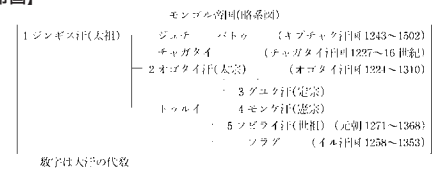 モンゴル帝国(略系図)
1 ジンギス汗(太祖) ジュチ バトゥ (キプチャク汗国1243〜1502)
チャガタイ (チャガタイ汗国1227〜16世紀)
2 オゴタイ汗(太宗) (オゴタイ汗国1224〜1310)
3 グユク汗(定宗)
トゥルイ 4 モンケ汗(憲宗)
5 フビライ汗(世祖) (元朝1271〜1368)
フラグ (イル汗国1258〜1353)
数字は大汗の代数